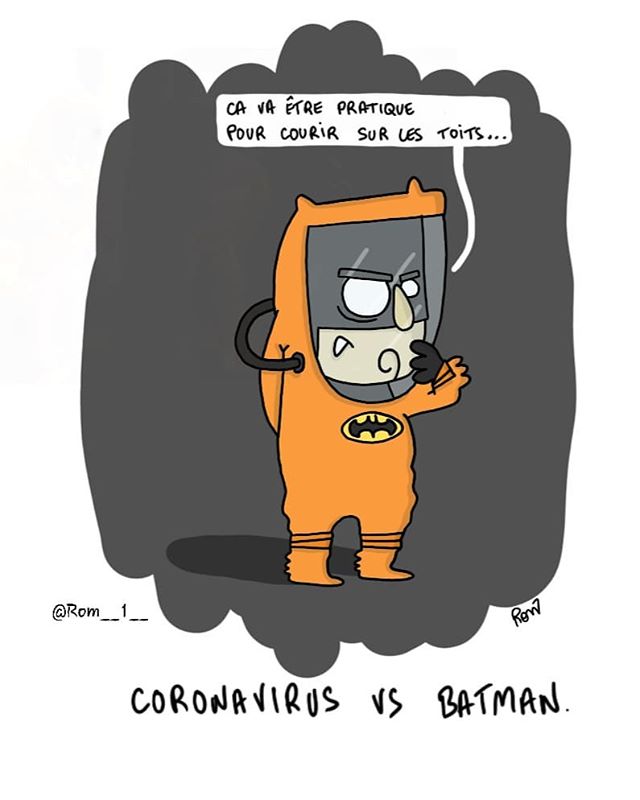 CA VA ÊTRE PRATIQUE
POUR COURIR SUR LES TOITS...
@Rom__1__
Rom
CORONAVIRUS VS BATMAN.